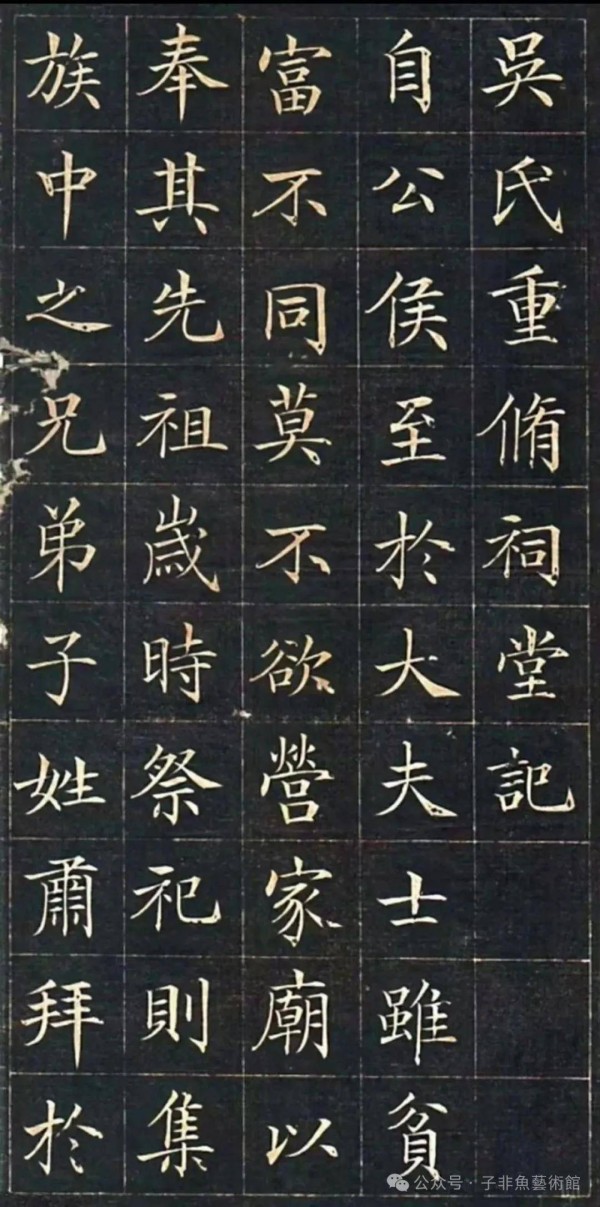 吳氏重脩祠堂記
自公侯至於大夫士雖貧
富不同莫不欲營家廟以
奉其先祖歲時祭祀則集
族中之兄弟子姓肅拜於
公众号·子非魚藝術館